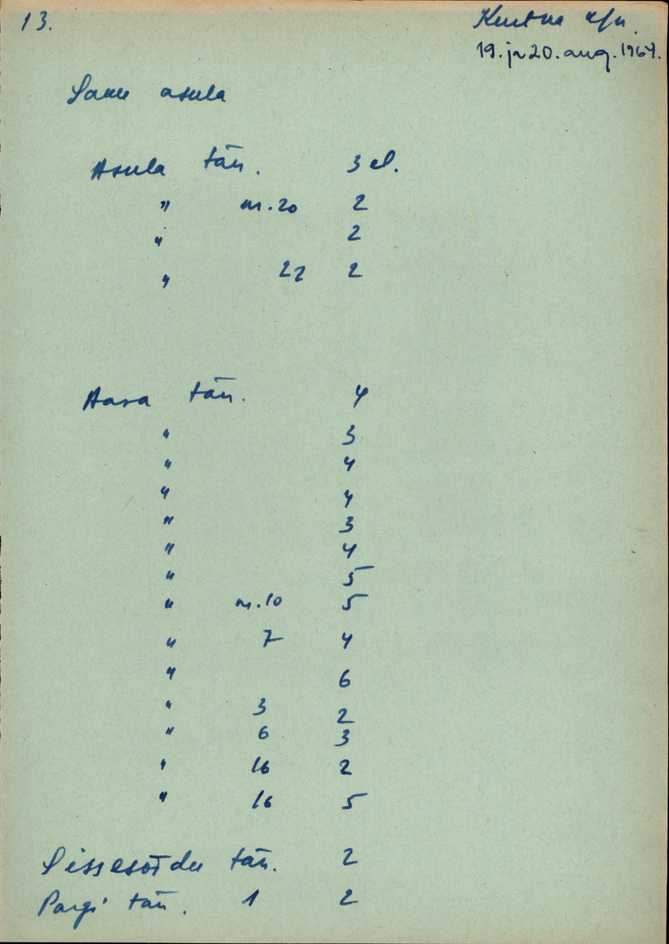 13.
Kurtna k/n.
19. ja 20. aug. 1964.
Saku asula
Asula tän. 3 el.
" nr. 20 2
" 2
" 22 2
Aasa tän. 4
" 3
" 4
" 4
" 3
" 4
" 5
" nr. 10 5
" 7 4
" 6
" 3 2
" 6 3
" 16 2
" 16 5
Sissesõidu tän. 2
Pargi tän. 1 2